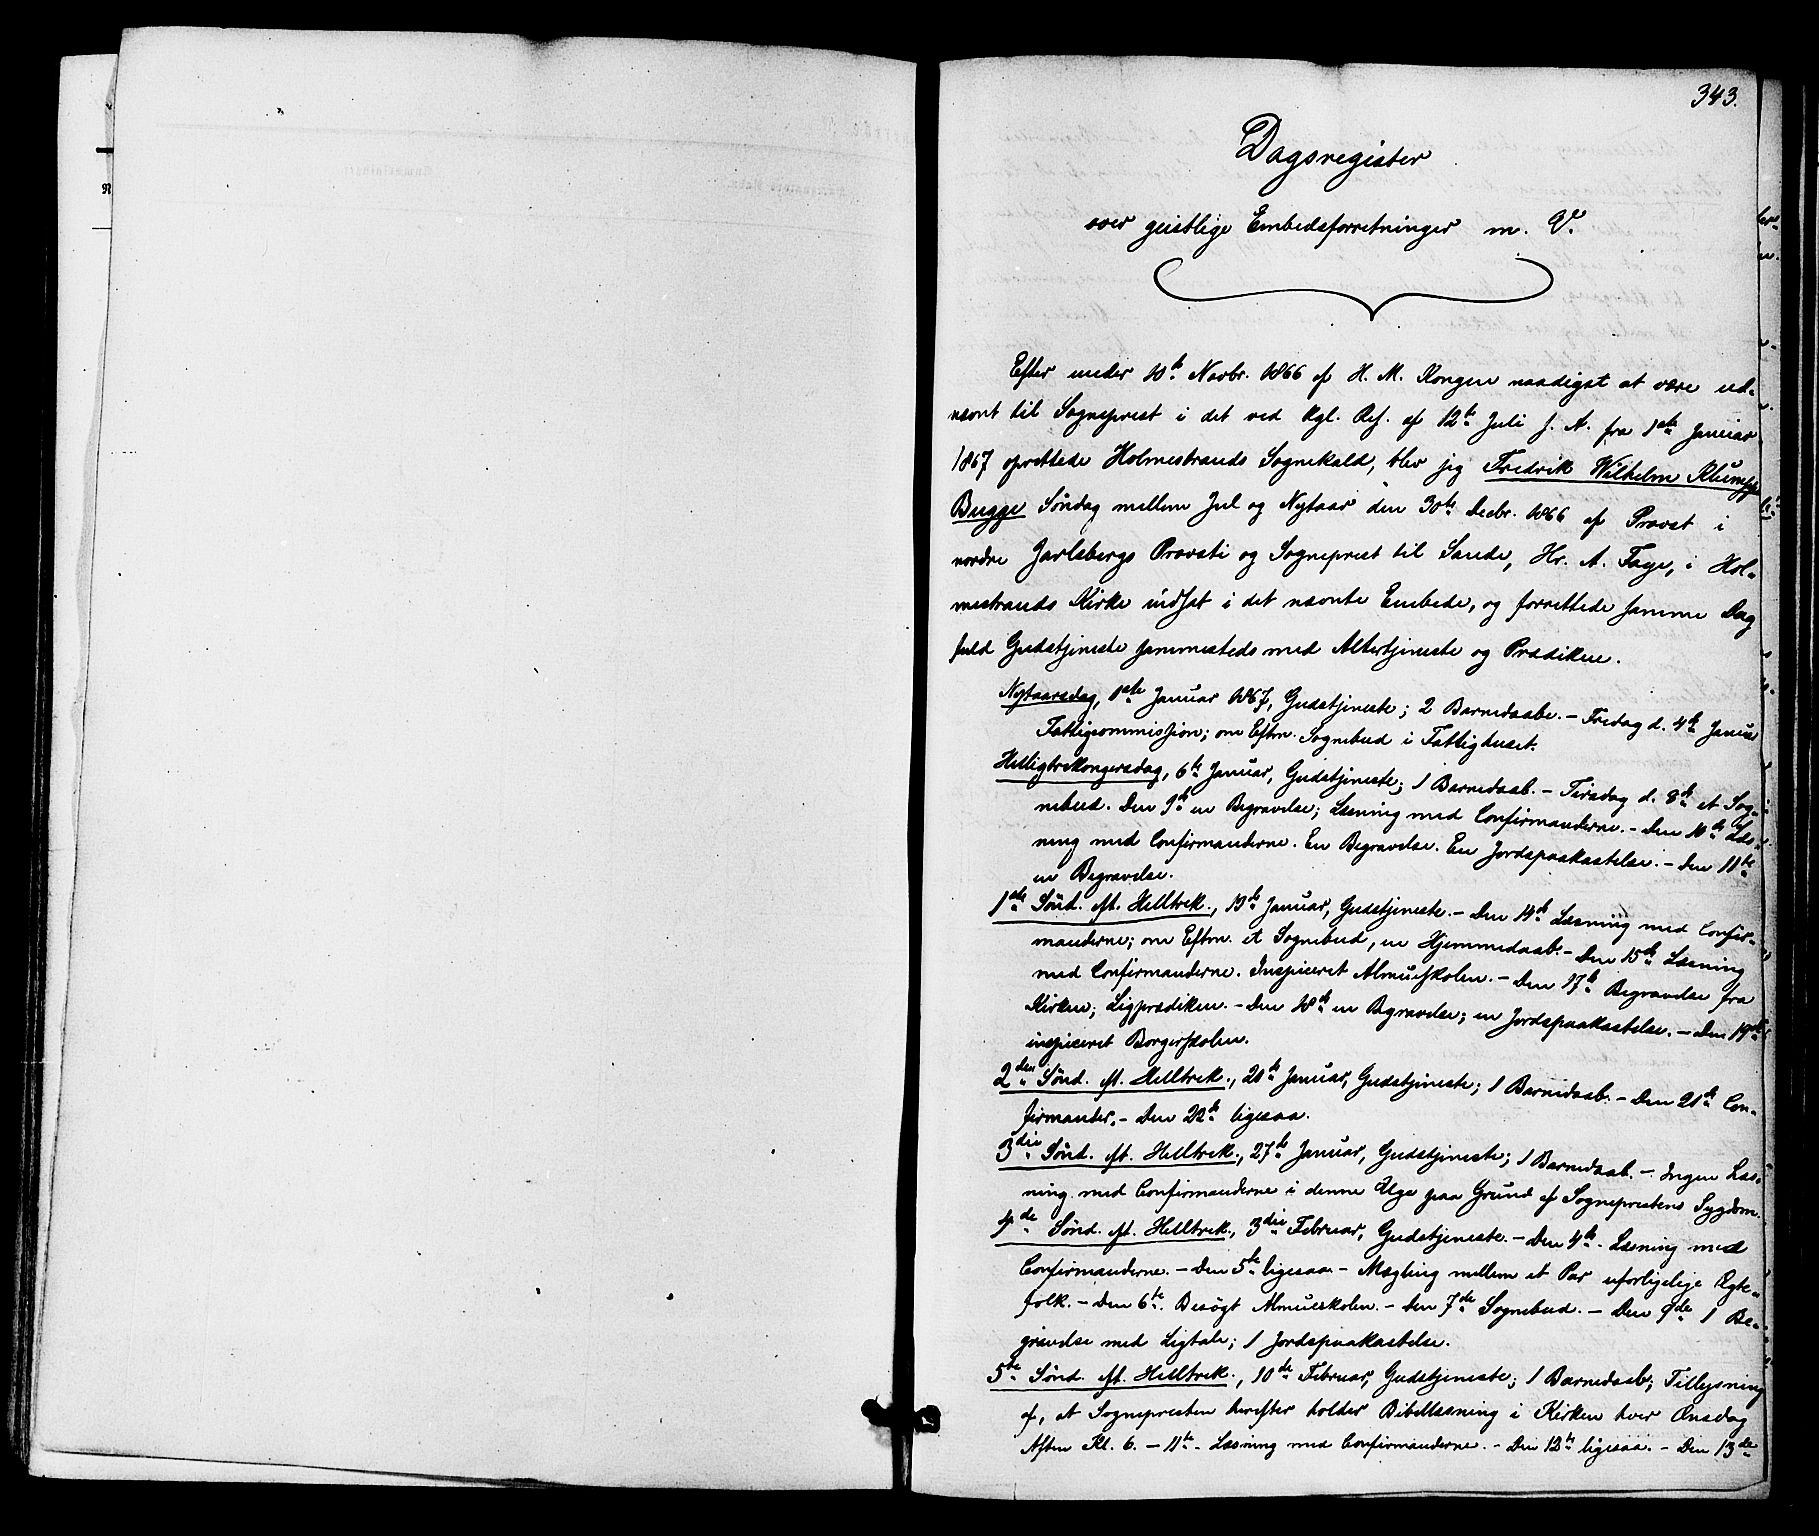 343.
Dagsregister
over geistlige Embedsforretninger m. V.
Efter under 10de Novbr. 1866 af H. M. Kongen naadigst at være ud-
nævnt til Sogneprest i det ved Kgl. Res. af 12te Juli s. A. fra 1ste Januar
1867 oprettede Holmestrands Sognekald, blev jeg Fredrik Wilhelm Klumpp
Bugge Søndag mellem Jul og Nytaar den 30te Decbr. 1866 af Provst i
nordre Jarlsbergs Provsti og Sogneprest til Sande, Hr. A. Faye, i Hol-
mestrands Kirke indsat i det nævnte Embede, og forrettede samme Dag
fuld Gudstjeneste sammesteds med Altertjeneste og Prædiken.
Nytaarsdag, 1ste Januar 1867, Gudstjeneste; 2 Barnedaabe. – Fredag d. 4de Januar
Fattigcommission; om Eftm. Sognebud i Fattighuset.
Helligtrekongersdag, 6te Januar, Gudstjeneste; 1 Barnedaab. – Tirsdag d. 8de et Sog-
nebud. Den 9de en Begravelse; Læsning med Confirmanderne. – Den 10de Læs-
ning med Confirmanderne. En Begravelse. En Jordspaakastelse. – Den 11te
en Begravelse.
1ste Sønd. eft. Helltrek., 13de Januar, Gudstjeneste. – Den 14de Læsning med Confir-
manderne; om Eftm. et Sognebud, en Hjemmedaab. – Den 15de Læsning
med Confirmanderne. Inspiceret Almueskolen. – Den 17de Begravelse fra
Kirken; Ligprædiken. – Den 18de en Begravelse; en Jordspaakastelse. – Den 19de
inspiceret Borgerskolen.
2den Sønd. eft. Helltrek., 20de Januar, Gudstjeneste; 1 Barnedaab. – Den 21de Con-
firmander. – Den 22de ligesaa.
3die Sønd. eft. Helltrek., 27de Januar, Gudstjeneste; 1 Barnedaab. – Ingen Læs-
ning med Confirmanderne i denne Uge paa Grund af Sogneprestens Sygdom.
4de Sønd. eft. Helltrek., 3die Februar, Gudstjeneste. – Den 4de Læsning med
Confirmanderne. – Den 5te ligesaa – Mægling mellem et Par uforligelige Ægte-
folk. – Den 6te Besøgt Almueskolen. – Den 7de Sognebud. – Den 9de 1 Be-
gravelse med Ligtale; 1 Jordspaakastelse.
5te Sønd. eft. Helltrek., 10de Februar, Gudstjeneste; 1 Barnedaab; Tillysning
af, at Sognepresten herefter holder Bibellæsning i Kirken hver Onsdag
Aften Kl. 6. – 11te Læsning med Confirmanderne. – Den 12te ligesaa. – Den 13de